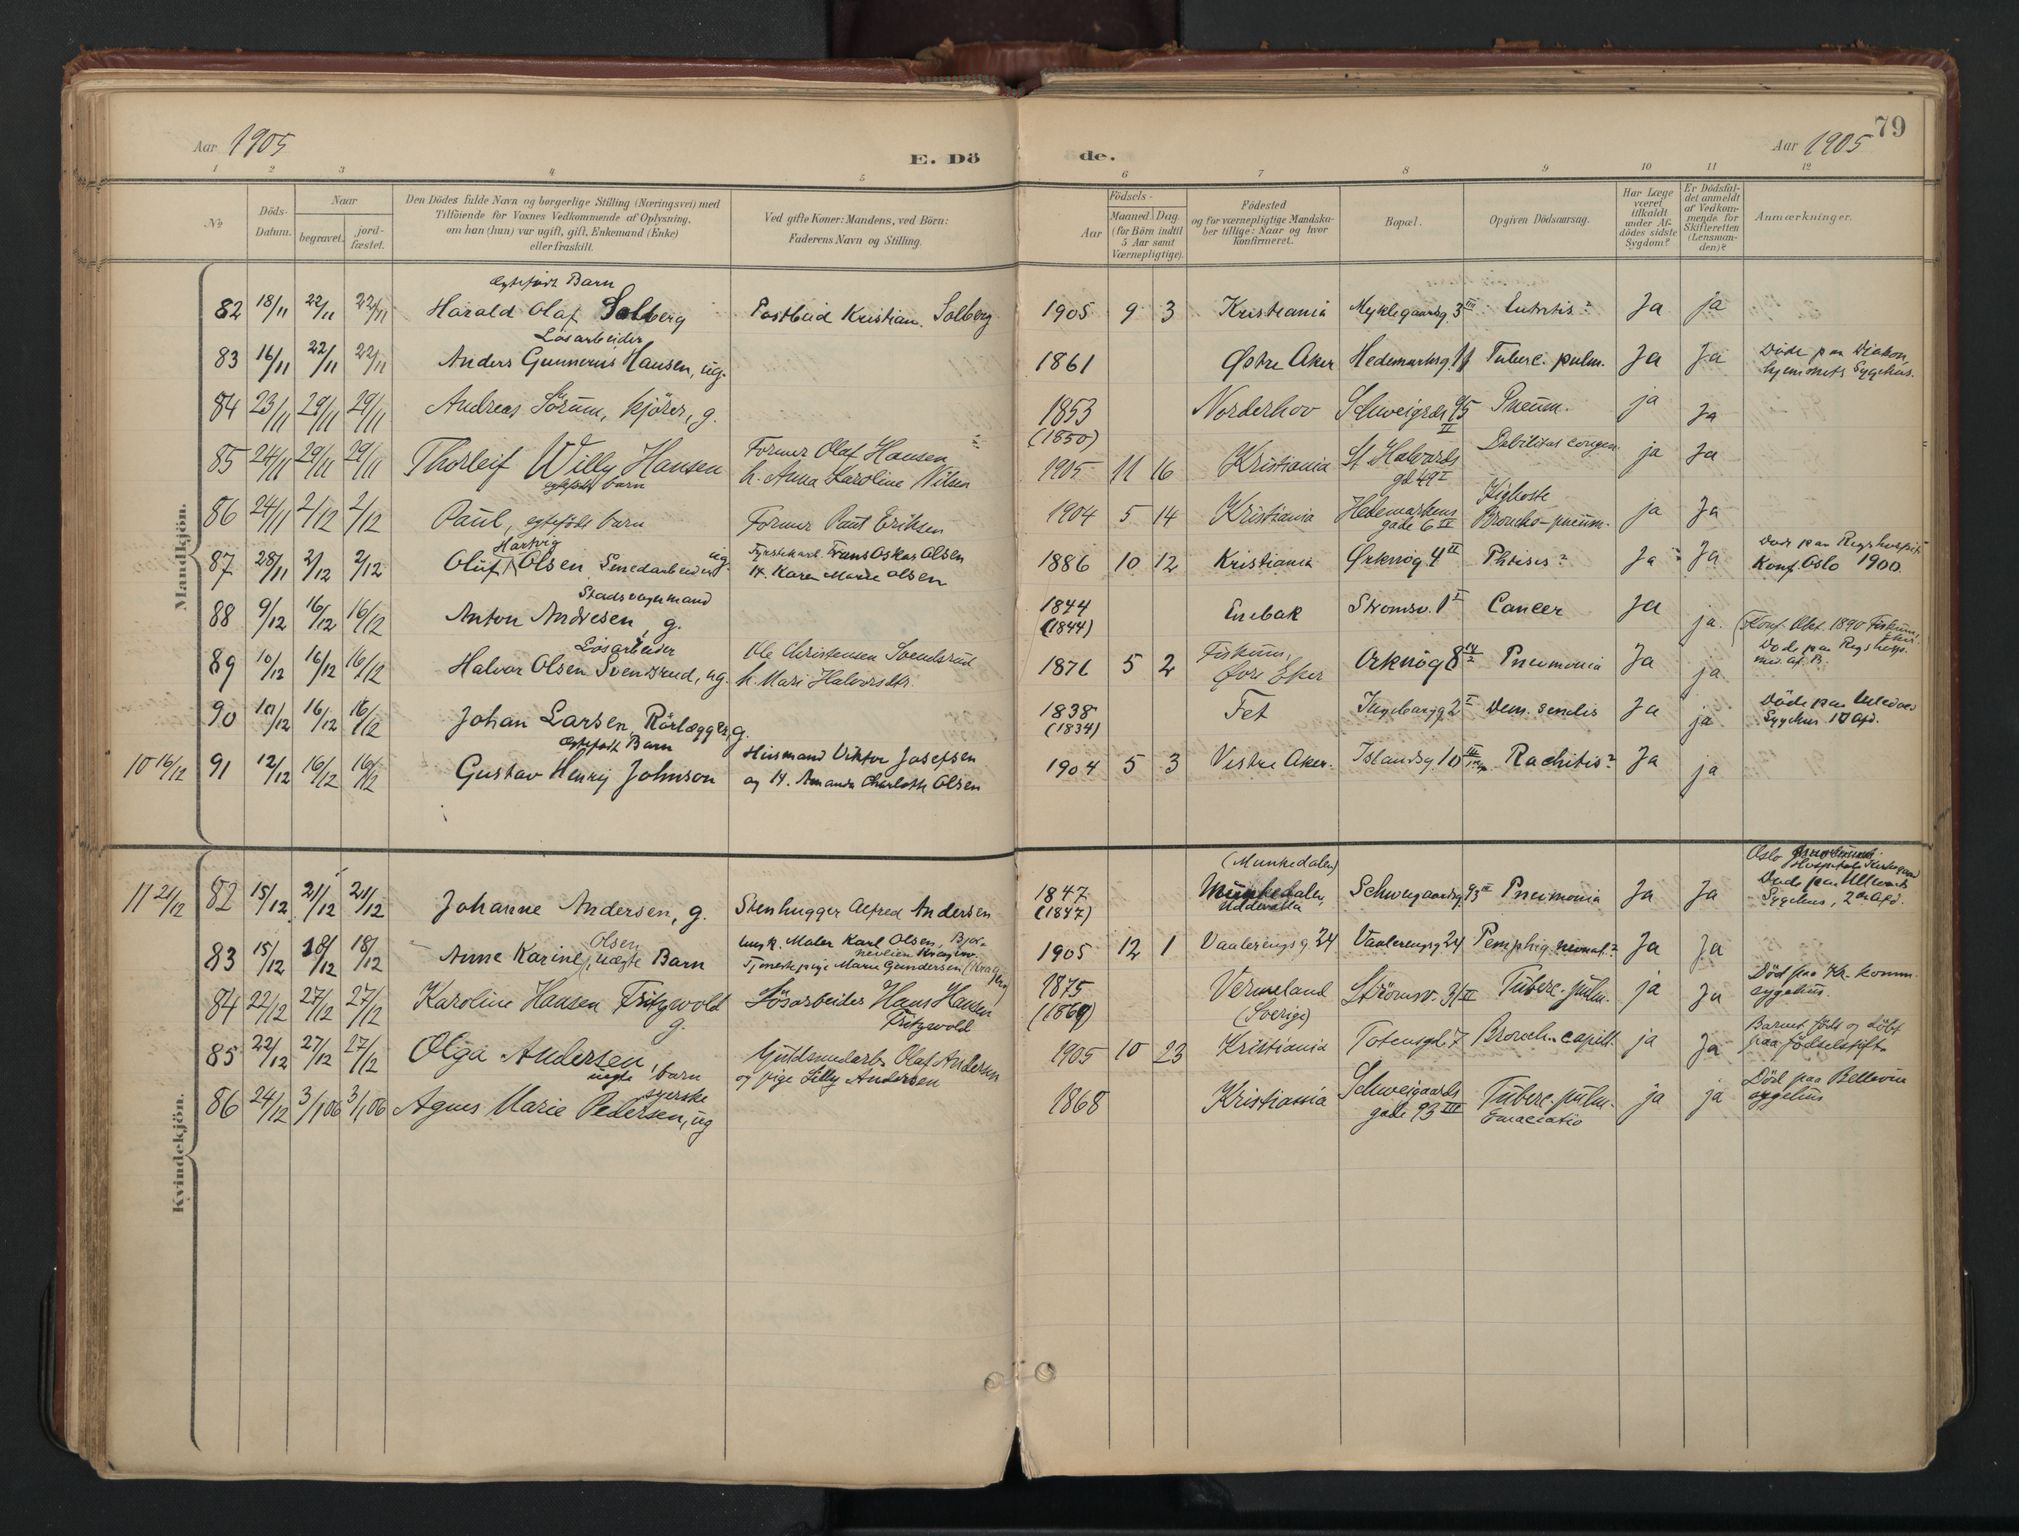 Aar 1905
E. Dö
de.
Aar 1905
79
1 2 3 4 5 6 7 8 9 10 11 12
No
Döds-Datum.
Naar
begravet.
jord-fæstet.
Den Dödes fulde Navn og borgerlige Stilling (Næringsvei) med
Tilföiende for Voxnes Vedkommende af Oplysning,
om han (hun) var ugift, gift, Enkemand (Enke)
eller fraskilt.
Ved gifte Koner: Mandens, ved Börn:
Faderens Navn og Stilling.
Födsels-
Aar
Maaned Dag
(for Börn indtil
5 Aar samt
Værnepligtige).
Födested
og for værnepligtige Mandska-
ber tillige: Naar og hvor
konfirmeret.
Bopæl.
Opgiven Dödsaarsag.
Har Læge
været
tilkaldt
under Af-
dödes sidste
Sygdom?
Er Dödsfal-
det anmeldt
af Vedkom-
mende for
Skifteretten
(Lensman-
den)?
Anmærkninger.
Mandkjön.
Ægtefødt Barn
82 18/11 22/11 22/11 Harald Olaf Solberg Postbud Kristian Solberg 1905 9 3 Kristiania Myklegaardsg. 3 III Ja ja
Løsarbeider
83 16/11 22/11 22/11 Anders Gunnerius Hansen, ug. 1861 Østre Aker Hedemarksg. 11 Tuberc. pulm. Ja Ja Døde paa Diakon.
hjemmets Sygehus.
84 23/11 29/11 29/11 Andreas Sörum, kjörer, g. 1853 Norderhov Schweigrds g 95 Pneum. ja Ja
(1850) II
85 24/11 29/11 29/11 Thorleif Willy Hansen Former Olaf Hansen 1905 11 16 Kristiania St Halvards Debilitas congen. ja Ja
egtefödt barn h. Anna Karoline Nilsen gd 49 I
86 24/11 2/12 2/12 Paul, egtefödt barn Former Paul Eriksen 1904 5 14 Kristiania Hedemarkens Kighoste ja Ja
gade 6 II Broncho-pneum.
Hartvig
87 28/11 2/12 2/12 Oluf Olsen Smedarbeider ug. Frans Oskar Olsen 1886 10 12 Kristiania Ørknøg. 4 II Phtisis? Ja Ja Døde paa Rigshospit
H. Karen Marie Olsen Konf. Oslo 1900.
Stadsvognmand
88 9/12 16/12 16/12 Anton Andresen, g. 1844 Enebak Strømsv. 1 I Cancer Ja ja.
(1844)
Løsarbeider
89 10/12 16/12 16/12 Halvor Olsen Svendsrud, ug. Ole Christensen Svendsrud 1876 5 2 Fiskum, Orknøg 8 Pneumonia Ja ja (Konf. Okt. 1890 Fiskum,
h. Mari Halvorsdtr. Øvre Eker Døde paa Rigshosp.
90 10/12 16/12 16/12 Johan Larsen Rørlægger, g. 1838 Fet Ingeborgg. 2 I Dem. senilis Ja ja Døde paa Ullevaal
(1834) Sygehus 17 Afd.
Ægtefødt Barn
10 16/12 91 12/12 16/12 16/12 Gustav Henry Johnson Husmand Viktor Josefsen 1904 5 3 Vestre Aker. Islandsg. 10 Rachitis? Ja ja
og H. Amanda Charlotte Olsen
Kvindekjön.
(Munkedalen)
11 21/12 82 15/12 21/12 21/12 Johanne Andersen, g. Stenhugger Alfred Andersen 1847 Munkedalen, Schweigaardsg 93 III Pneumonia Ja Ja Oslo
(1847) Uddevalla Døde paa Ullevaals
Sygehus, 2 en Afd.
83 15/12 18/12 18/12 Anne Karine Olsen, uægte Barn Ungk. Maler Karl Olsen, 1905 12 1 Vaalerengsg. 24 Vaalerengsg 24 Pemphig. neonat.? Ja Ja
Tjenestepige Marie Gundersen
84 22/12 27/12 27/12 Karoline Hansen Fritzwold Lösarbeider Hans Hansen 1875 Vermeland Strömsv. 31 II Tuberc. pulm. ja Ja Död paa Kr. komm.
g. Fritzwold (1869) (Sverige) sygehus.
85 22/12 27/12 27/12 Olga Andersen, Guldsmedarb. Olaf Andersen 1905 10 23 Kristiania Totensgd 7 Bronch. capill. ja Ja Barnet födt og döbt
uegte barn og pige Lilly Andersen paa födselsstift.
86 24/12 3/1 06 3/1 06 Agnes Marie Pedersen, ug syerske 1868 Kristiania Schweigaards Tuberc. pulm. ja ja Död paa Bellevue
gade 93 III Emaciatio sygehus